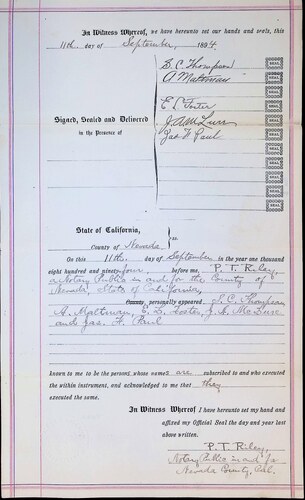 In Witness Whereof, we have hereunto set our hands and seals, this
11th. day of September, 1894
S. C. Thompson SEAL
A. Maltman SEAL
SEAL
E. C. Foster SEAL
Signed, Sealed and Delivered J. A. McLure SEAL
in the Presence of Jas. H. Paul SEAL
SEAL
SEAL
SEAL
SEAL
State of California, } ss:
County of Nevada.
On this 11th. day of September in the year one thousand
eight hundred and ninety four, before me, P. T. Riley,
a Notary Public in and for the County of
Nevada, State of California,
County, personally appeared S. C. Thompson
A. Maltman, E. C. Foster, J. A. McLure
and Jas. H. Paul
known to me to be the persons whose names are subscribed to and who executed
the within instrument, and acknowledged to me that they
executed the same.
In Witness Whereof I have hereunto set my hand and
affixed my Official Seal the day and year last
above written.
P. T. Riley
Notary Public in and for
Nevada County, Cal.